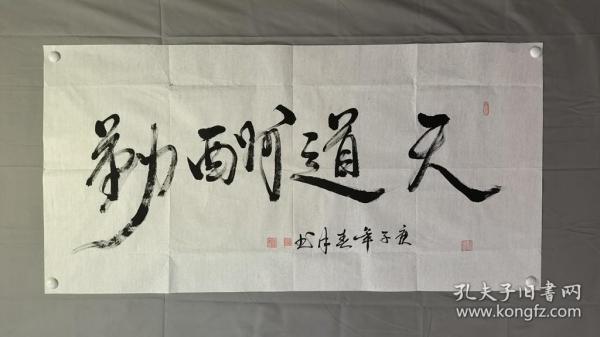 天道酬勤
庚子年春沐书
孔夫子旧书网
www.kongfz.com